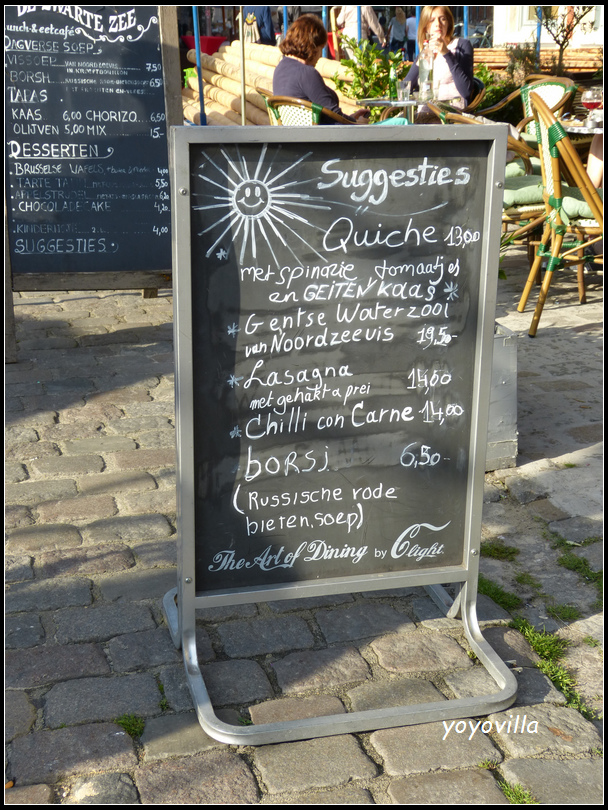 DE ZWARTE ZEE
lunch & eetcafé
DAGVERSE SOEP
VISSOEP 7,50
BORSH 6,50
TAPAS
KAAS 6,00 CHORIZO 6,50
OLIJVEN 5,00 MIX 15,-
DESSERTEN
BRUSSELSE WAFELS 4,00
TARTE 5,50
APFELSTRUDEL
CHOCOLADE CAKE 4,20
4,00
SUGGESTIES
Suggesties
Quiche 13,00
met spinazie tomaatjes
en GEITENKAAS
Gentse Waterzooi
van Noordzeevis 19,50-
Lasagna 14,00
met gehakt a prei
Chilli con Carne 14,00
borsj 6,50-
(Russische rode
bieten soep)
The Art of Dining by C light.
yoyovilla